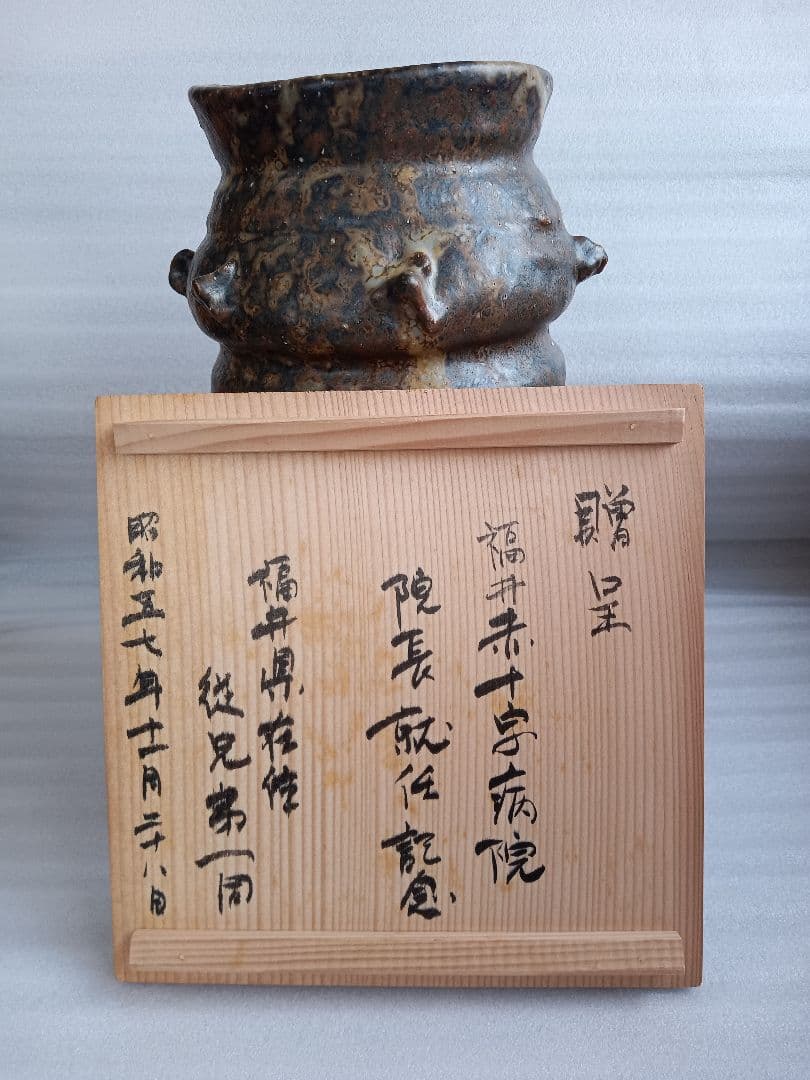 贈呈
福井赤十字病院
院長就任記念
福井県在住
従兄弟一同
昭和五七年十一月二十八日